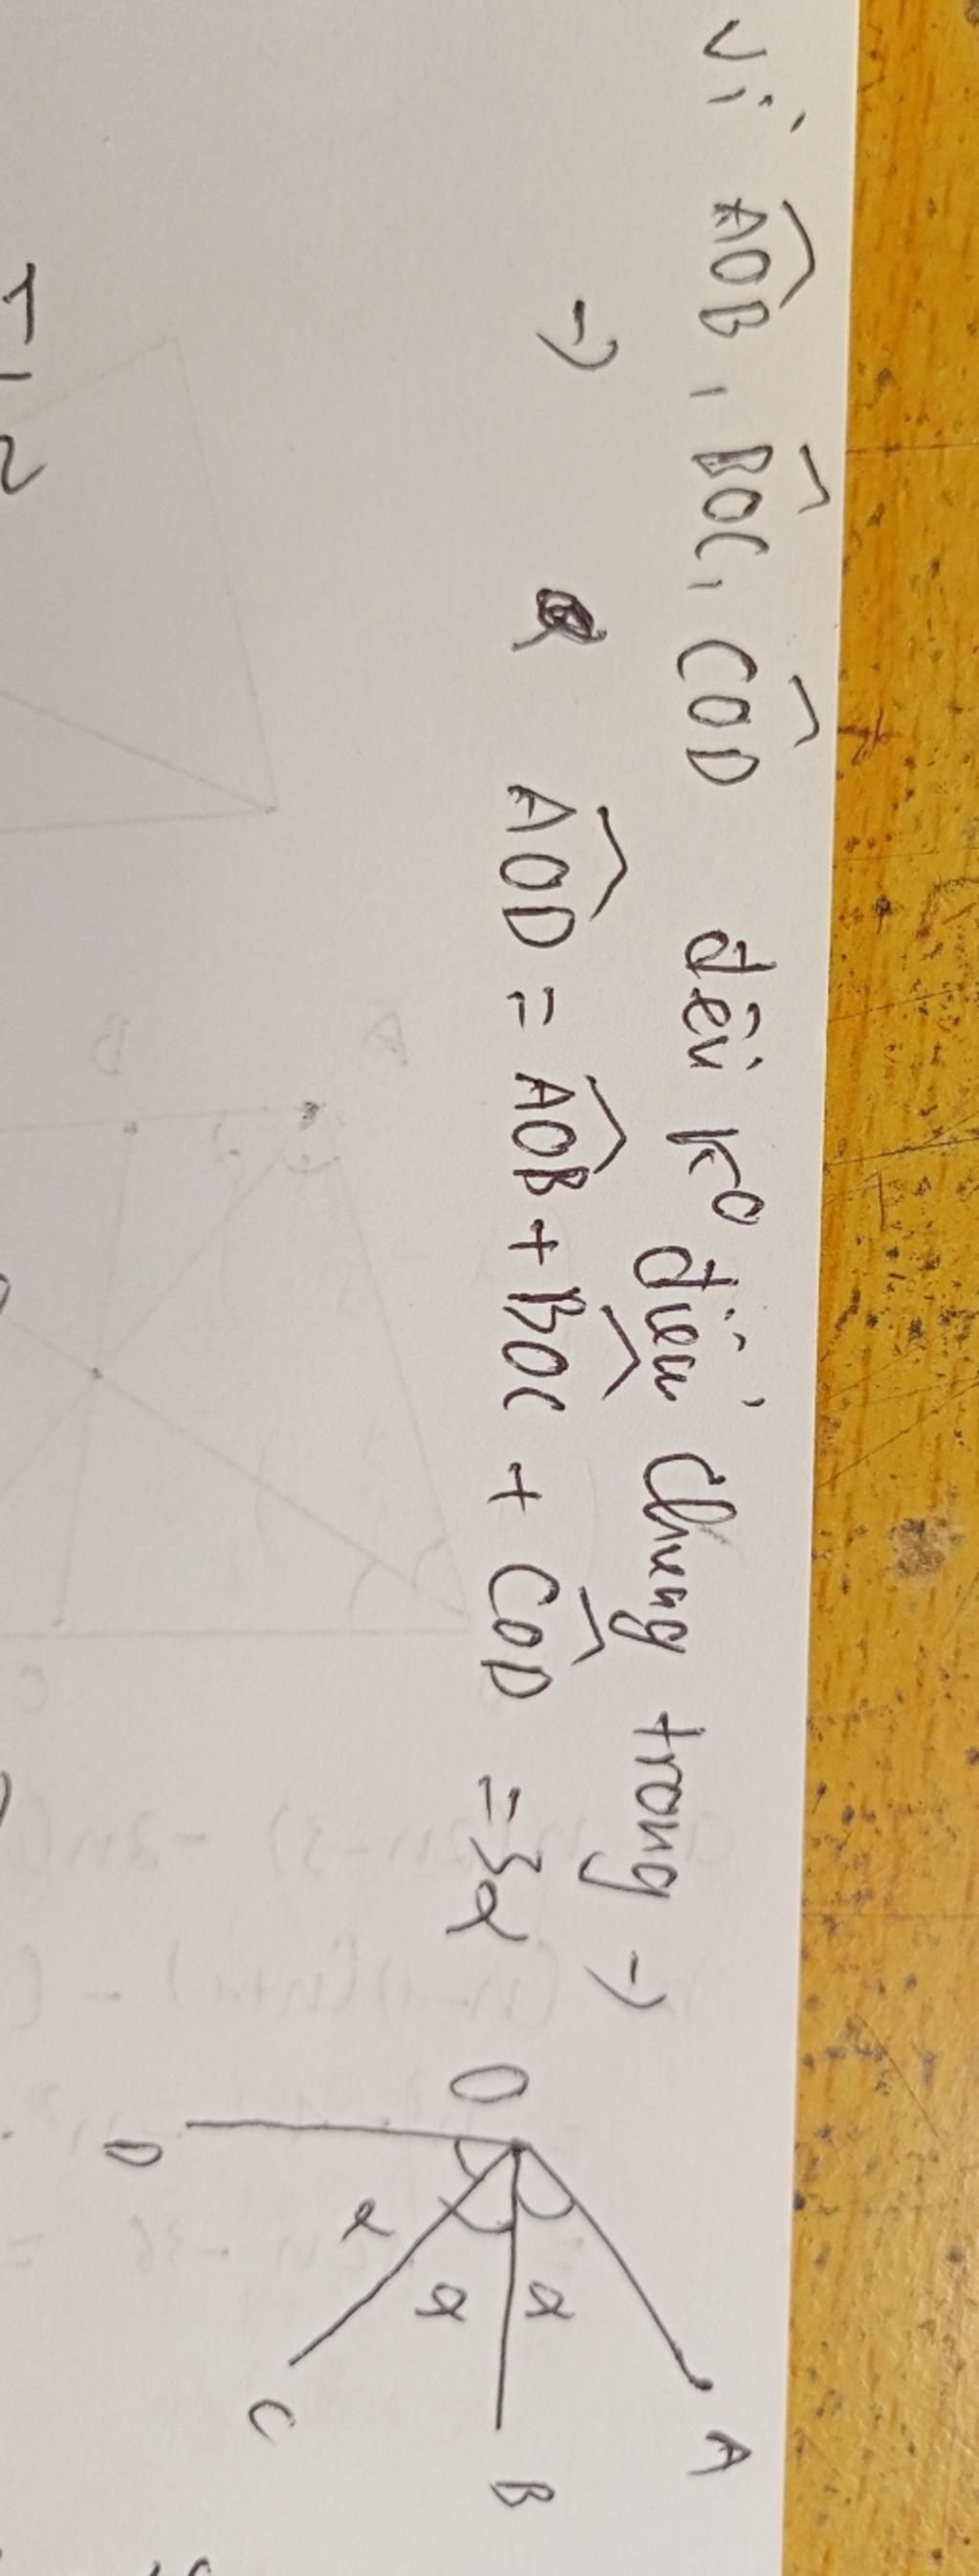 Vì AOB, BOC, COD đều k° điểm chung trong →
→ AOD = AOB + BOC + COD = 3α
O
A
α
B
α
C
α
D